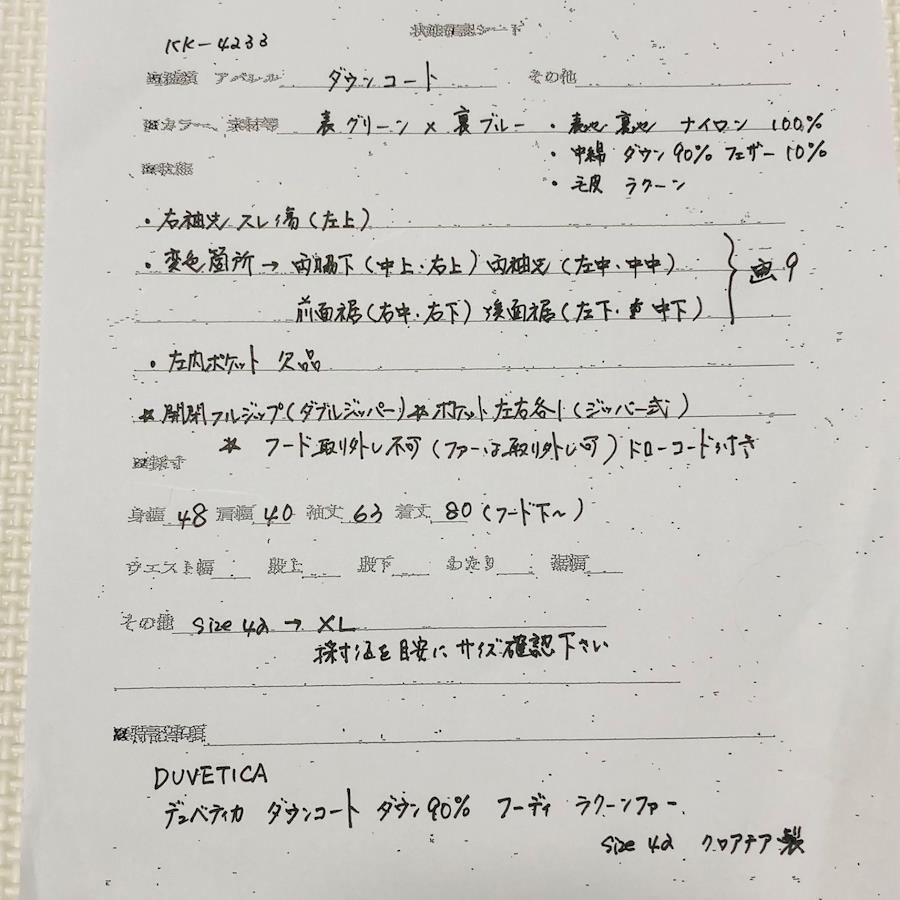 状態確認シート
KK-4233
アパレル ダウンコート その他
カラー、素材等 表グリーン × 裏ブルー ・表地 裏地 ナイロン 100%
・中綿 ダウン 90% フェザー 10%
・毛皮 ラクーン
状態
・右袖先 スレ傷(左上)
・変色箇所→両脇下(中上・右上)両袖先(左中・中中)
画9
前面裾(右中・右下)後面裾(左下・中下)
・左内ポケット 欠品
★開閉フルジップ(ダブルジッパー)★ポケット左右各1(ジッパー式)
★ フード取り外し不可(ファーは取り外し可)ドローコード付き
採寸
身幅 48 肩幅 40 袖丈 63 着丈 80(フード下〜)
ウエスト幅 股上 股下 わたり 裾幅
その他 size 42 → XL
採寸値を目安にサイズ確認下さい
特記事項
DUVETICA
デュベティカ ダウンコート ダウン90% フーディ ラクーンファー
size 42 クロアチア製